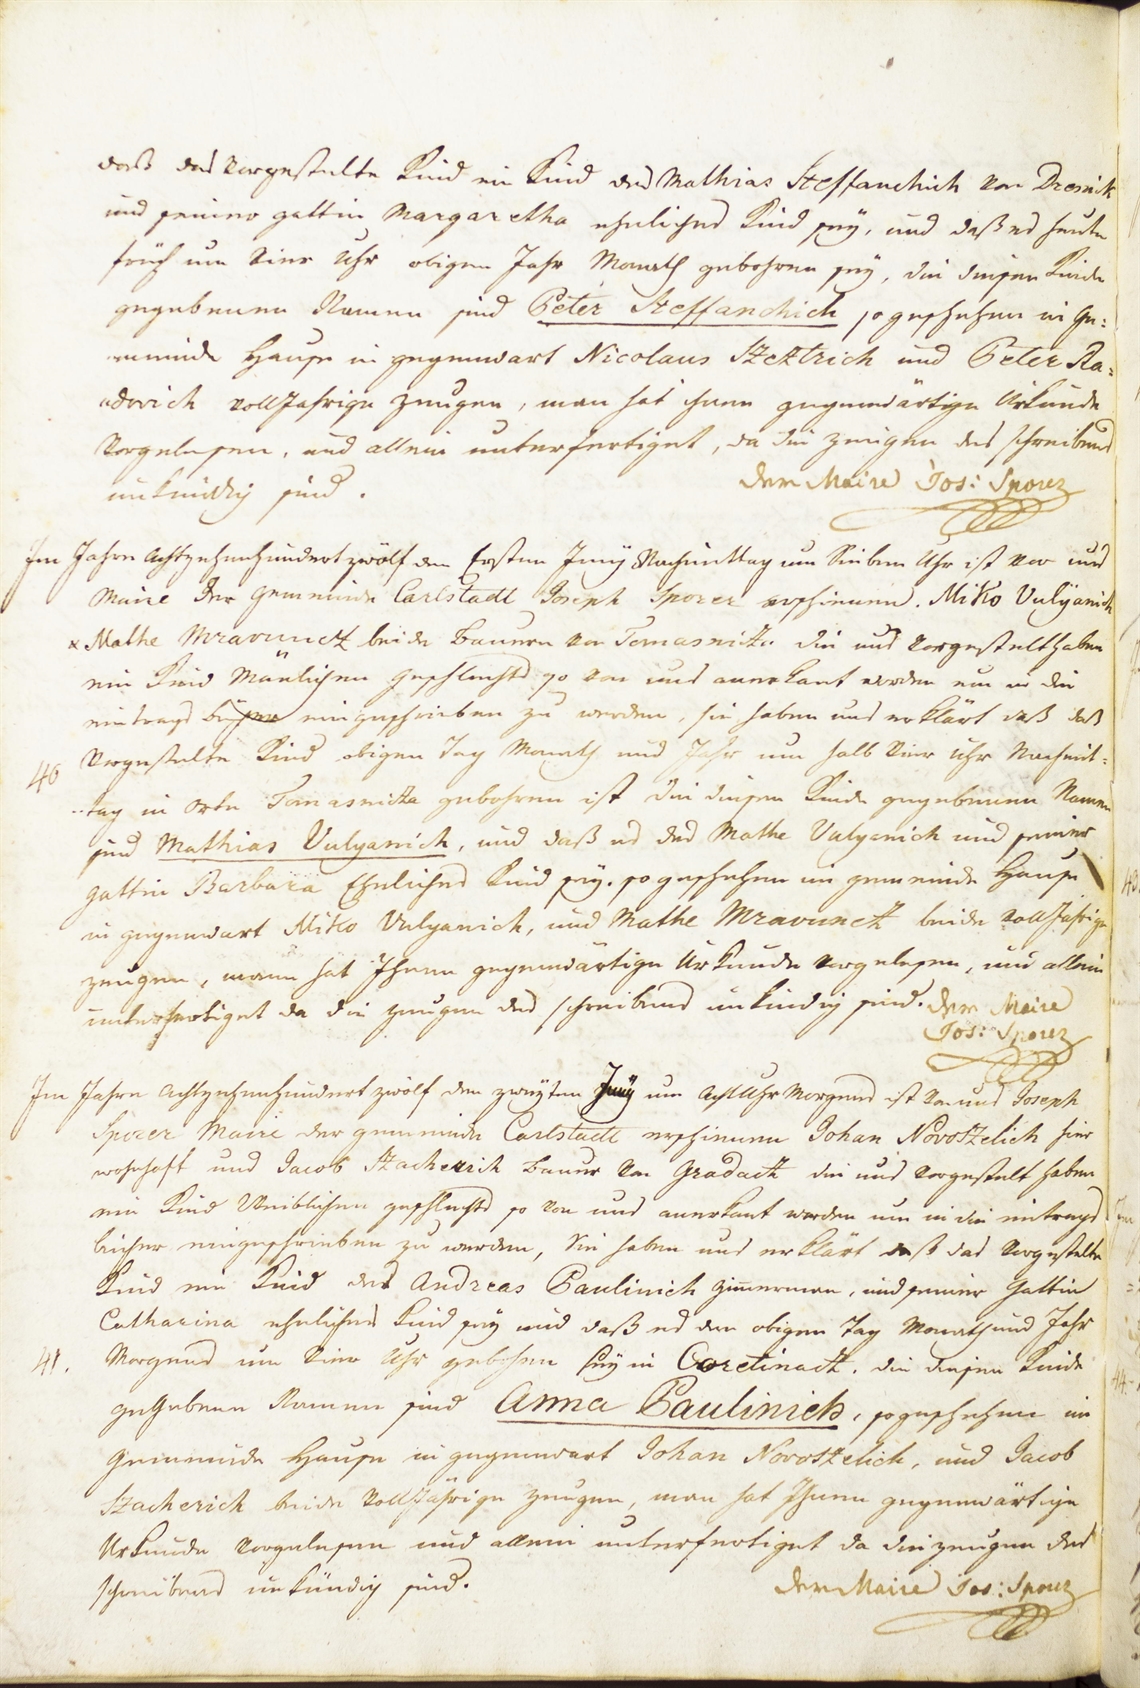 daß das vorgestelte Kind ein Kind des Mathias Steffanchich von Dresnik
und seiner gattin Margaretha ehnliches Kind seÿ, und daß es heute
früh um Vier Uhr obigen Jahr Monath gebohren seÿ, die diesen Kinde
gegebenen Namen sind Peter Steffanchich so geschehen in Ge:
meinde Hause in gegenwart Nicolaus Sztztrich und Peter Ra=
adovich volljahrige zeugen, man hat ihnen gegenwärtige Urkunde
vorgelesen, und allein unterfertiget, da die zeugen des schreibens
unkündig sind.
Der Maire Jos: Sporer
Im Jahre Achtzehenhundert zwölf den Ersten Junÿ Nachmittag um Sieben Uhr ist vor uns
Maire der Gemeinde Carlstadt Joseph Sporer erschienen. Miko Vulyanich
x Mathe Mravunczt beide Bauern von Tomasnitza die uns vorgestelt haben
ein Kind Mänlichen geschlechts so von uns anerkant worden um in die
eintrags bücher eingeschrieben zu werden, sie haben uns erklärt daß daß
vorgestelte Kind obigen Tag Monath und Jahr um halb Vier Uhr Nachmit=
40
tag in Orte Tomasnitza gebohren ist die diesen Kinde gegebenen Namen
sind Mathias Vulyanich, und daß es des Mathe Vulyanich und seiner
gattin Barbara Ehnliches Kind seÿ. so geschehen im gemeinde Hause
in gegenwart Miko Vulyanich, und Mathe Mravunczt beide volljährige
zeugen, mann hat Ihnen gegenwärtige Urkunde vorgelesen, und allein
unterfertiget da die zeugen des schreibens unkündig sind. Der Maire
Jos: Sporer
Im Jahre Achtzehenhundert zwölf den zweÿten Junÿ um Acht Uhr Morgens ist vor uns Joseph
Sporer Maire der gemeinde Carlstadt erschienen Johan Novoszelich hier
wohnhaft und Jacob Szacherich Bauer von Gradacz die uns vorgestelt haben
ein Kind Weiblichen geschlechts so von uns anerkant worden um in die eintrags
bücher eingeschrieben zu werden, Sie haben uns erklärt daß das vorgestelte
Kind ein Kind des Andreas Paulinich Zimerman, und seiner Gattin
Catharina ehnliches Kind seÿ und daß es den obigen Tag Monath und Jahr
41.
Morgens um Vier Uhr gebohren seÿ in Coretinacz. die diesen Kinde
gegebenen Namen sind Anna Paulinich, so geschehen im
Gemeinde Hause in gegenwart Johan Novoszelich, und Jacob
Szacherich beide volljährige zeugen, man hat Ihnen gegenwärtige
Urkunde vorgelesen und allein unterfertiget da die zeugen des
schreibens unkündig sind.
Der Maire Jos: Sporer